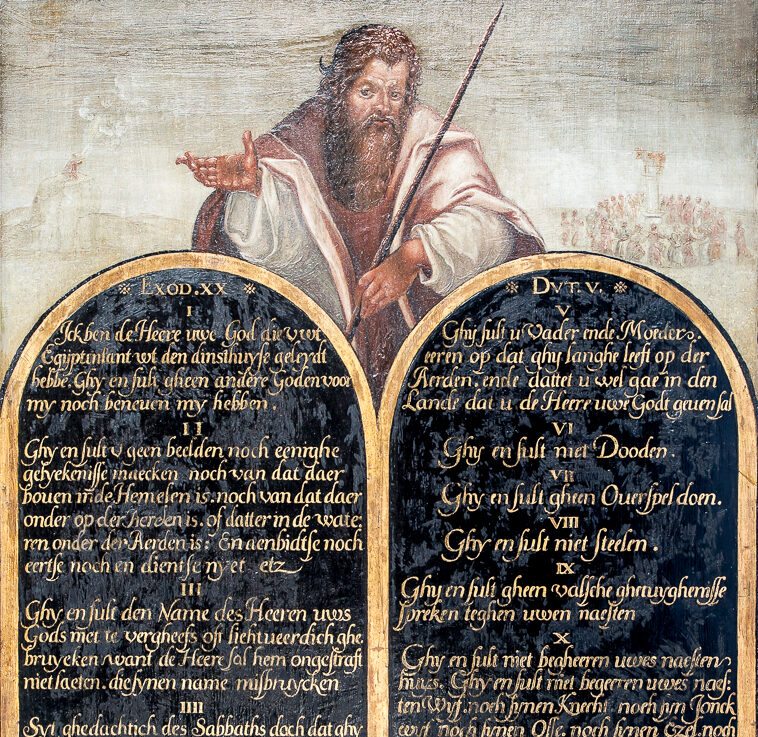 EXOD.XX
I
Ick ben de Heere uwe God die v wt
Egijptenlant wt den dinsthuyse geleydt
hebbe. Ghy en sult gheen andere Goden voor
my noch beneuen my hebben.
II
Ghy en sult v geen beelden noch eenighe
gelyekenisse maecken noch van dat daer
bouen in de Hemelen is. noch van dat daer
onder op der Aerden is. of datter in de wate:
ren onder der Aerden is: En aenbidtse noch
eertse noch en dientse nyet etz
III
Ghy en sult den Name des Heeren uws
Gods niet te vergheefs oft lichtueerdich ghe
bruycken want de Heere sal hem ongestraft
niet laeten. die synen name misbruycken
IIII
Syt ghedachtich des Sabbaths doch dat ghy
DVT.V.
V
Ghy sult u Vader ende Moeder
eeren op dat ghy langhe leeft op der
Aerden. ende dattet u wel gae in den
Lande dat u de Heere uwe Godt geuen sal
VI
Ghy en sult niet Dooden.
VII
Ghy en sult gheen Ouerspel doen.
VIII
Ghy en sult niet steelen.
IX
Ghy en sult gheen valsche ghetuyghenisse
spreken teghen uwen naesten
X
Ghy en sult niet begheeren uwes naesten
huys. Ghy en sult niet begeeren uwes naes:
ten Wyf. noch synen Knecht noch syn Jonck
wyf noch synen Osse. noch synen Ezel. noch